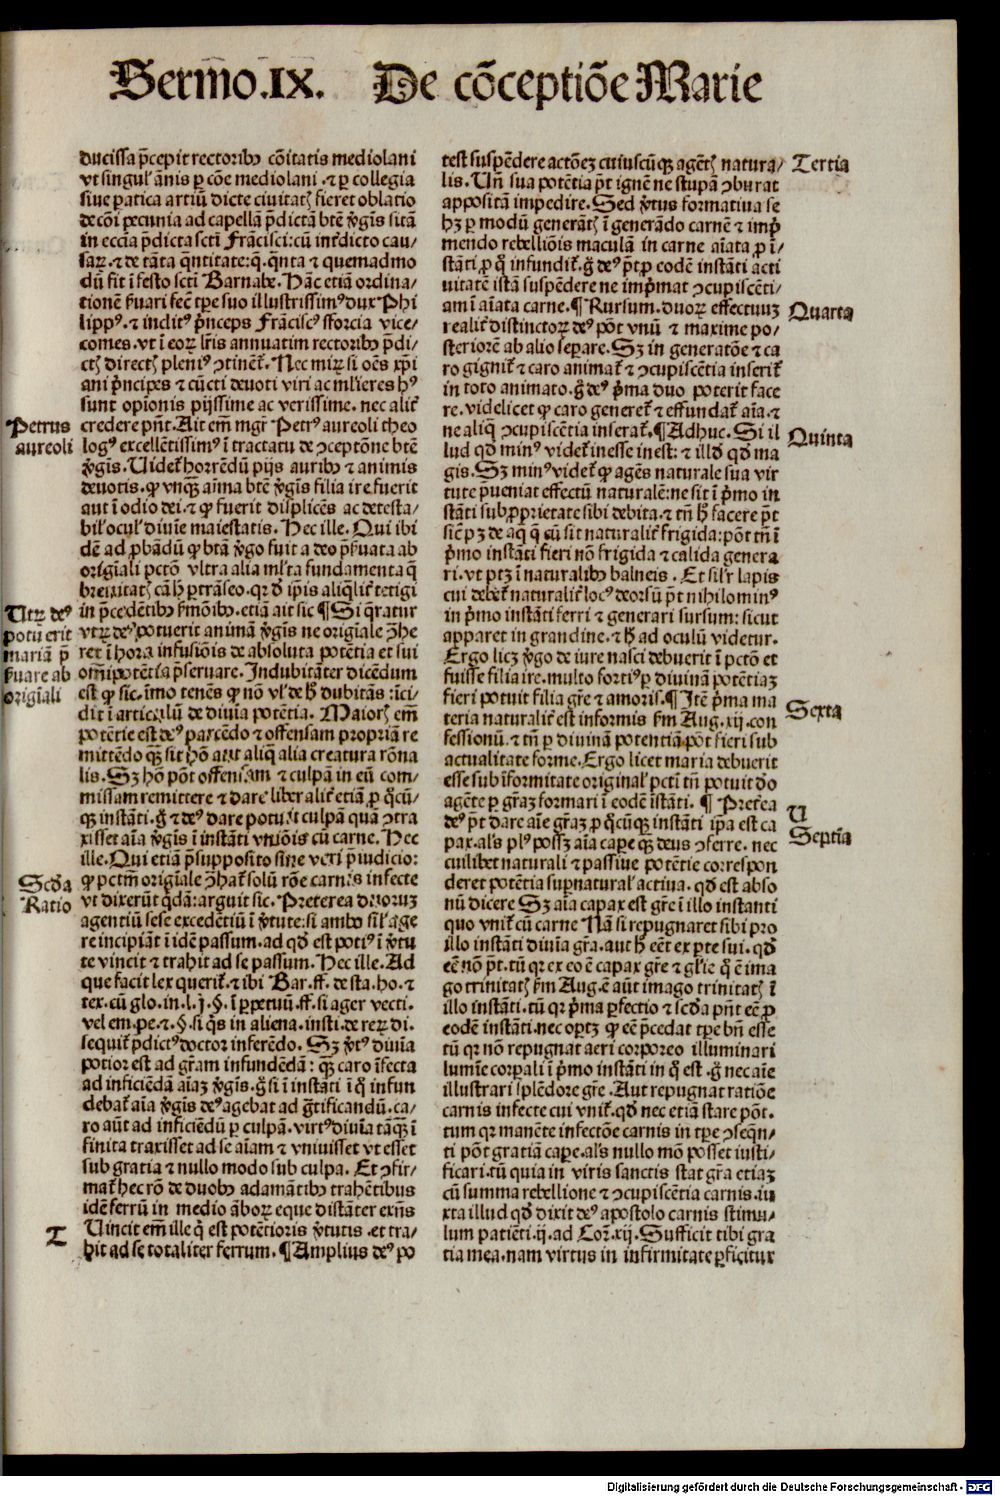 Sermo.IX. De cõceptiõe Marie
ducissa p̃cepit rectoribꝫ cõitatis mediolani
vt singul' ãnis ꝑ cõe mediolani ⁊ ꝑ collegia
siue ꝑatica artiũ dicte ciuitatꝭ fieret oblatio
de cõi pecunia ad capellã p̃dictã btẽ ꝟgĩs sitã
in ecc̃ia p̃dicta sctĩ Frãcisci: cũ inr̃dicto cau-
saꝝ .⁊ de tãta q̃ntitate: q̃ .q̃nta ⁊ quemadmo
dũ fit ĩ festo sctĩ Barnabe. Hãc etiã ordina/
tionẽ ẜuari fec̃ tꝑe suo illustrissimꝰ dux Phi
lippꝰ .⁊ inclitꝰ p̃nceps Frãciscꝰ sforcia vice-
comes. vt ĩ eoꝝ lr̃is annuatim rectoribꝫ p̃di/
ctꝭ directꝭ pleniꝰ ꝯtinet̃. Nec miꝝ si oẽs xp̃i
ani p̃ncipes ⁊ cũcti deuoti viri ac ml'ieres hꝰ
sunt opĩonis pijssime ac verissime. nec alit̃
Petrus credere pñt. Ait em̃ mgr̃ Petrꝰ aureoli theo
aureoli logꝰ excellẽtissimꝰ ĩ tractatu de ꝯceptõne btẽ
ꝟgĩs. Uidet̃ horrendũ pijs auribꝫ ⁊ animis
deuotis. ꝙ vnqꝫ aĩma btẽ ꝟgĩs filia ire fuerit
aut ĩ odio dei. ⁊ ꝙ fuerit displicẽs ac detesta/
bil' ocul' diuĩe maiestatis. Hec ille. Qui ibi
dẽ ad ꝓbãdũ ꝙ btã ꝟgo fuit a deo p̃ẜuata ab
origĩali pctõ vltra alia ml'ta fundamenta q̃
breuitatꝭ cã h̃ ꝑtrãseo. qꝛ d̃ ip̃is aliq̃lit̃ tetigi
Vtꝝ deꝰ in p̃cedẽtibꝫ ẜmõibꝫ. etiã ait sic ¶ Si q̃ratur
potuerit vtꝝ deꝰ potuerit animã ꝟgĩs ne origĩale ꝯ̃he
mariã p̃ ret ĩ hora infusiõis de absoluta potẽtia et sui
ẜuare ab om̃ipotẽtia p̃seruare. Indubitãter dicẽdum
origĩali est ꝙ sic. ĩmo tenẽs ꝙ nõ vl' de h̃ dubitãs: ĩci/
dit ĩ articulũ de diuĩa potẽtia. Maiorꝭ em̃
potẽtie est deꝰ parcẽdo ⁊ offensam propriã re
mittẽdo qꝫ̃ sit hõ aut aliq̃ alia creatura rõna
lis. Sꝫ hõ põt offensam ⁊ culpã in eũ com-
missam remittere ⁊ dare liberalit̃ etiã ꝓ q̃cũ/
qꝫ instãti. g̃ ⁊ deꝰ dare potuit culpã quã ꝯtra
xisset aĩa ꝟgĩs ĩ instãti vniõis cũ carne. Hec
ille. Qui etiã p̃supposito sine veri p̃iudicio:
Scd̃a ꝙ pctm̃ origĩale ꝯ̃hat̃ solũ rõe carnis infecte
Ratio vt dixerũt q̃dã: arguit sic. Preterea duoruꝫ
agentiũ sese excedẽtiũ ĩ ꝟtute: si ambo sil' age
re incipiãt ĩ idẽ passum. ad qd̃ est potiꝰ ĩ ꝟtu
te vincit ⁊ trahit ad se passum. Hec ille. Ad
que facit lex querit̃. ⁊ ibi Bar. ff. de sta. ho. ⁊
tex. cũ glo. in .l. j. §. ĩ ꝑpetuũ. ff. si ager vecti.
vel em. pe. ⁊. §. si q̃s in aliena. insti. de reꝝ di.
sequit̃ p̃dictꝰ doctor inferẽdo. Sꝫ ꝟtꝰ diuĩa
potior est ad gr̃am infundẽdã: qꝫ̃ caro ĩfecta
ad inficiẽdã aĩaꝫ ꝟgĩs. g̃ si ĩ instãti ĩ q̃ infun
debat̃ aĩa ꝟgĩs deꝰ agebat ad gr̃tificandũ. ca/
ro aũt ad inficiẽdũ ꝑ culpã. virtꝰ diuĩa tãqꝫ̃ ĩ
finita traxisset ad se aĩam ⁊ vniuisset vt esset
sub gratia ⁊ nullo modo sub culpa. Et ꝯfir/
mat̃ hec rõ de duobꝫ adamãtibꝫ trahẽtibus
idẽ ferrũ in medio ãboꝝ eque distãter exñs
T Uincit em̃ ille q̃ est potẽtioris ꝟtutis. et tra/
hit ad se totaliter ferrum. ¶ Amplius deꝰ po
test suspẽdere actõeꝫ cuiuscũqꝫ agẽtꝭ natura/ Tertia
lis. Un̄ sua potẽtia p̃t ignẽ ne stupã ꝯburat
appositã impedire. Sed ꝟtus formatiua se
hꝫ ꝑ modũ generãtꝭ ĩ generãdo carnẽ ⁊ imp̃
mendo rebelliõis maculã in carne aĩata ꝓ ĩ/
stãti ꝓ q̃ infundit̃. g̃ deꝰ p̃t ꝓ eodẽ instãti acti
uitatẽ istã suspẽdere ne imp̃mat ꝯcupiscẽti/
am ĩ aĩata carne. ¶ Rursum. duoꝝ effectuuꝫ Quarta
realit̃ distinctoꝝ deꝰ põt vnũ ⁊ maxime po/
steriorẽ ab alio seꝑare. Sꝫ in generatõe ⁊ ca
ro gignit̃ ⁊ caro animat̃ ⁊ ꝯcupiscẽtia inserit̃
in toto animato. g̃ deꝰ p̃ma duo poterit face
re. videlicet ꝙ caro generet̃ ⁊ effundat̃ aĩa. ⁊
ne aliq̃ ꝯcupiscẽtia inserat̃. ¶ Adhuc. Si il Quinta
lud qd̃ minꝰ videt̃ inesse inest: ⁊ illd̃ qd̃ ma
gis. Sꝫ minꝰ videt̃ ꝙ agẽs naturale sua vir
tute p̃ueniat effectũ naturalẽ: ne sit ĩ p̃mo in
stãti sub ꝓprietate sibi debita. ⁊ tñ h̃ facere p̃t
sicꝫ pꝫ de aq̃ q̃ cũ sit naturalit̃ frigida: põt tñ ĩ
p̃mo instãti fieri nõ frigida ⁊ calida genera
ri. vt ptꝫ ĩ naturalibꝫ balneis. Et sil'r lapis
cui debet̃ naturalit̃ locꝰ deorsũ p̃t nihilominꝰ
in p̃mo instãti ferri ⁊ generari sursum: sicut
apparet in grandine. ⁊ h̃ ad oculũ videtur.
Ergo licꝫ ꝟgo de iure nasci debuerit ĩ pctõ et
fuisse filia ire. multo fortiꝰ ꝑ diuinã potẽtiaꝫ
fieri potuit filia gr̃e ⁊ amoris. ¶ Itẽ p̃ma ma Sexta
teria naturalit̃ est informis ẜm Aug. xij. con
fessionũ. ⁊ tñ ꝑ diuinã potentiã põt fieri sub
actualitate forme. Ergo licet maria debuerit
esse sub ĩformitate original' pctĩ tñ potuit d̃o
agẽte ꝑ gr̃aꝫ formari ĩ eodẽ ĩstãti. ¶ Pret̃ea U
deꝰ p̃t dare aĩe gr̃aꝫ ꝓ q̃cũqꝫ instãti ip̃a est ca Septĩa
pax. als̃ plꝰ possꝫ aĩa caꝑe qꝫ̃ deus ꝯferre. nec
cuilibet naturali ⁊ passiue potẽtie correspon
deret potẽtia suꝑnatural' actiua. qd̃ est abso
nũ dicere Sꝫ aĩa capax est gr̃e ĩ illo instanti
quo vnit̃ cũ carne Nã si repugnaret sibi pro
illo instãti diuĩa gr̃a. aut h̃ eẽt ex ꝑte sui. qd̃
eẽ nõ p̃t. tũ qꝛ ex eo ẽ capax gr̃e ⁊ gl'ie q̃ ẽ ima
go trinitatꝭ ẜm Aug. ẽ aũt imago trinitatꝭ ĩ
illo instãti. tũ qꝛ p̃ma ꝑfectio ⁊ scd̃a pñt eẽ ꝓ
eodẽ instãti. nec oportꝫ ꝙ eẽ p̃cedat tꝑe bñ esse
tũ qꝛ nõ repugnat aeri corporeo illuminari
lumĩe corꝑali ĩ p̃mo instãti in q̃ est. g̃ nec aĩe
illustrari splẽdore gr̃e. Aut repugnat ratiõe
carnis infecte cui vnit̃. qd̃ nec etiã stare põt.
tum qꝛ manẽte infectõe carnis in tꝑe ꝯseq̃n/
ti põt gratiã caꝑe. als̃ nullo mõ posset iusti/
ficari. tũ quia in viris sanctis stat gr̃a etiaꝫ
cũ summa rebellione ⁊ ꝯcupiscẽtia carnis. iu
xta illud qd̃ dixit deꝰ apostolo carnis stimu/
lum patiẽti .ij. ad Coꝝ. xij. Sufficit tibi gra
tia mea. nam virtus in infirmitate ꝑficitur
Digitalisierung gefördert durch die Deutsche Forschungsgemeinschaft - DFG